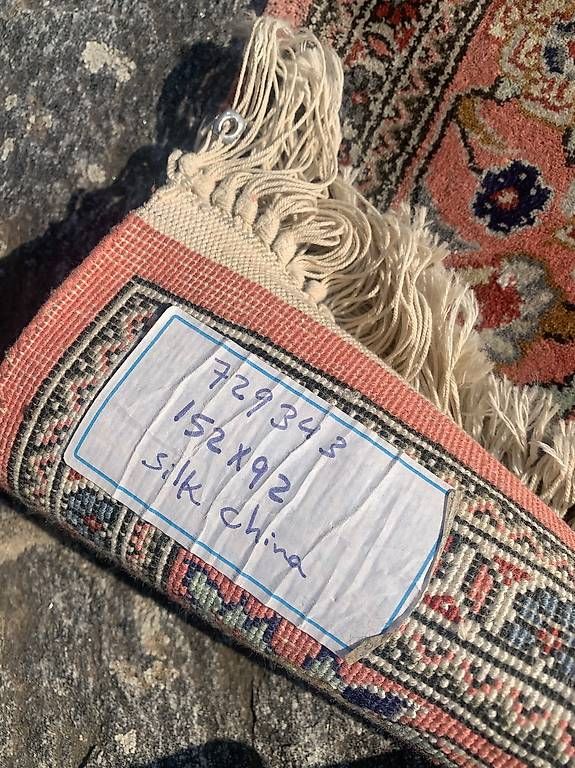 729343
152x92
silk china